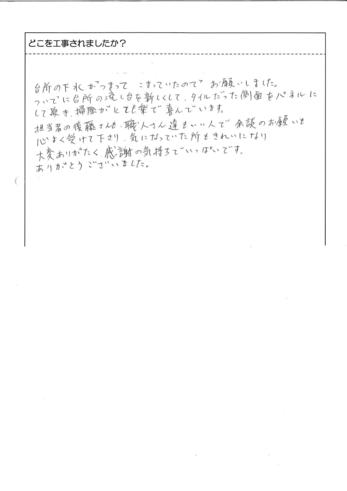 どこを工事されましたか？
台所の下水がつまって こまっていたので お願いしました。
ついでに台所の流し台を新しくして、タイルだった側面をパネルに
して頂き、掃除がとても楽で喜んでいます。
担当者の後藤さんも、職人さん達もいい人で 余談のお願いも
心よく受けて下さり、気になっていた所もきれいになり
大変ありがたく 感謝の気持ちでいっぱいです。
ありがとうございました。